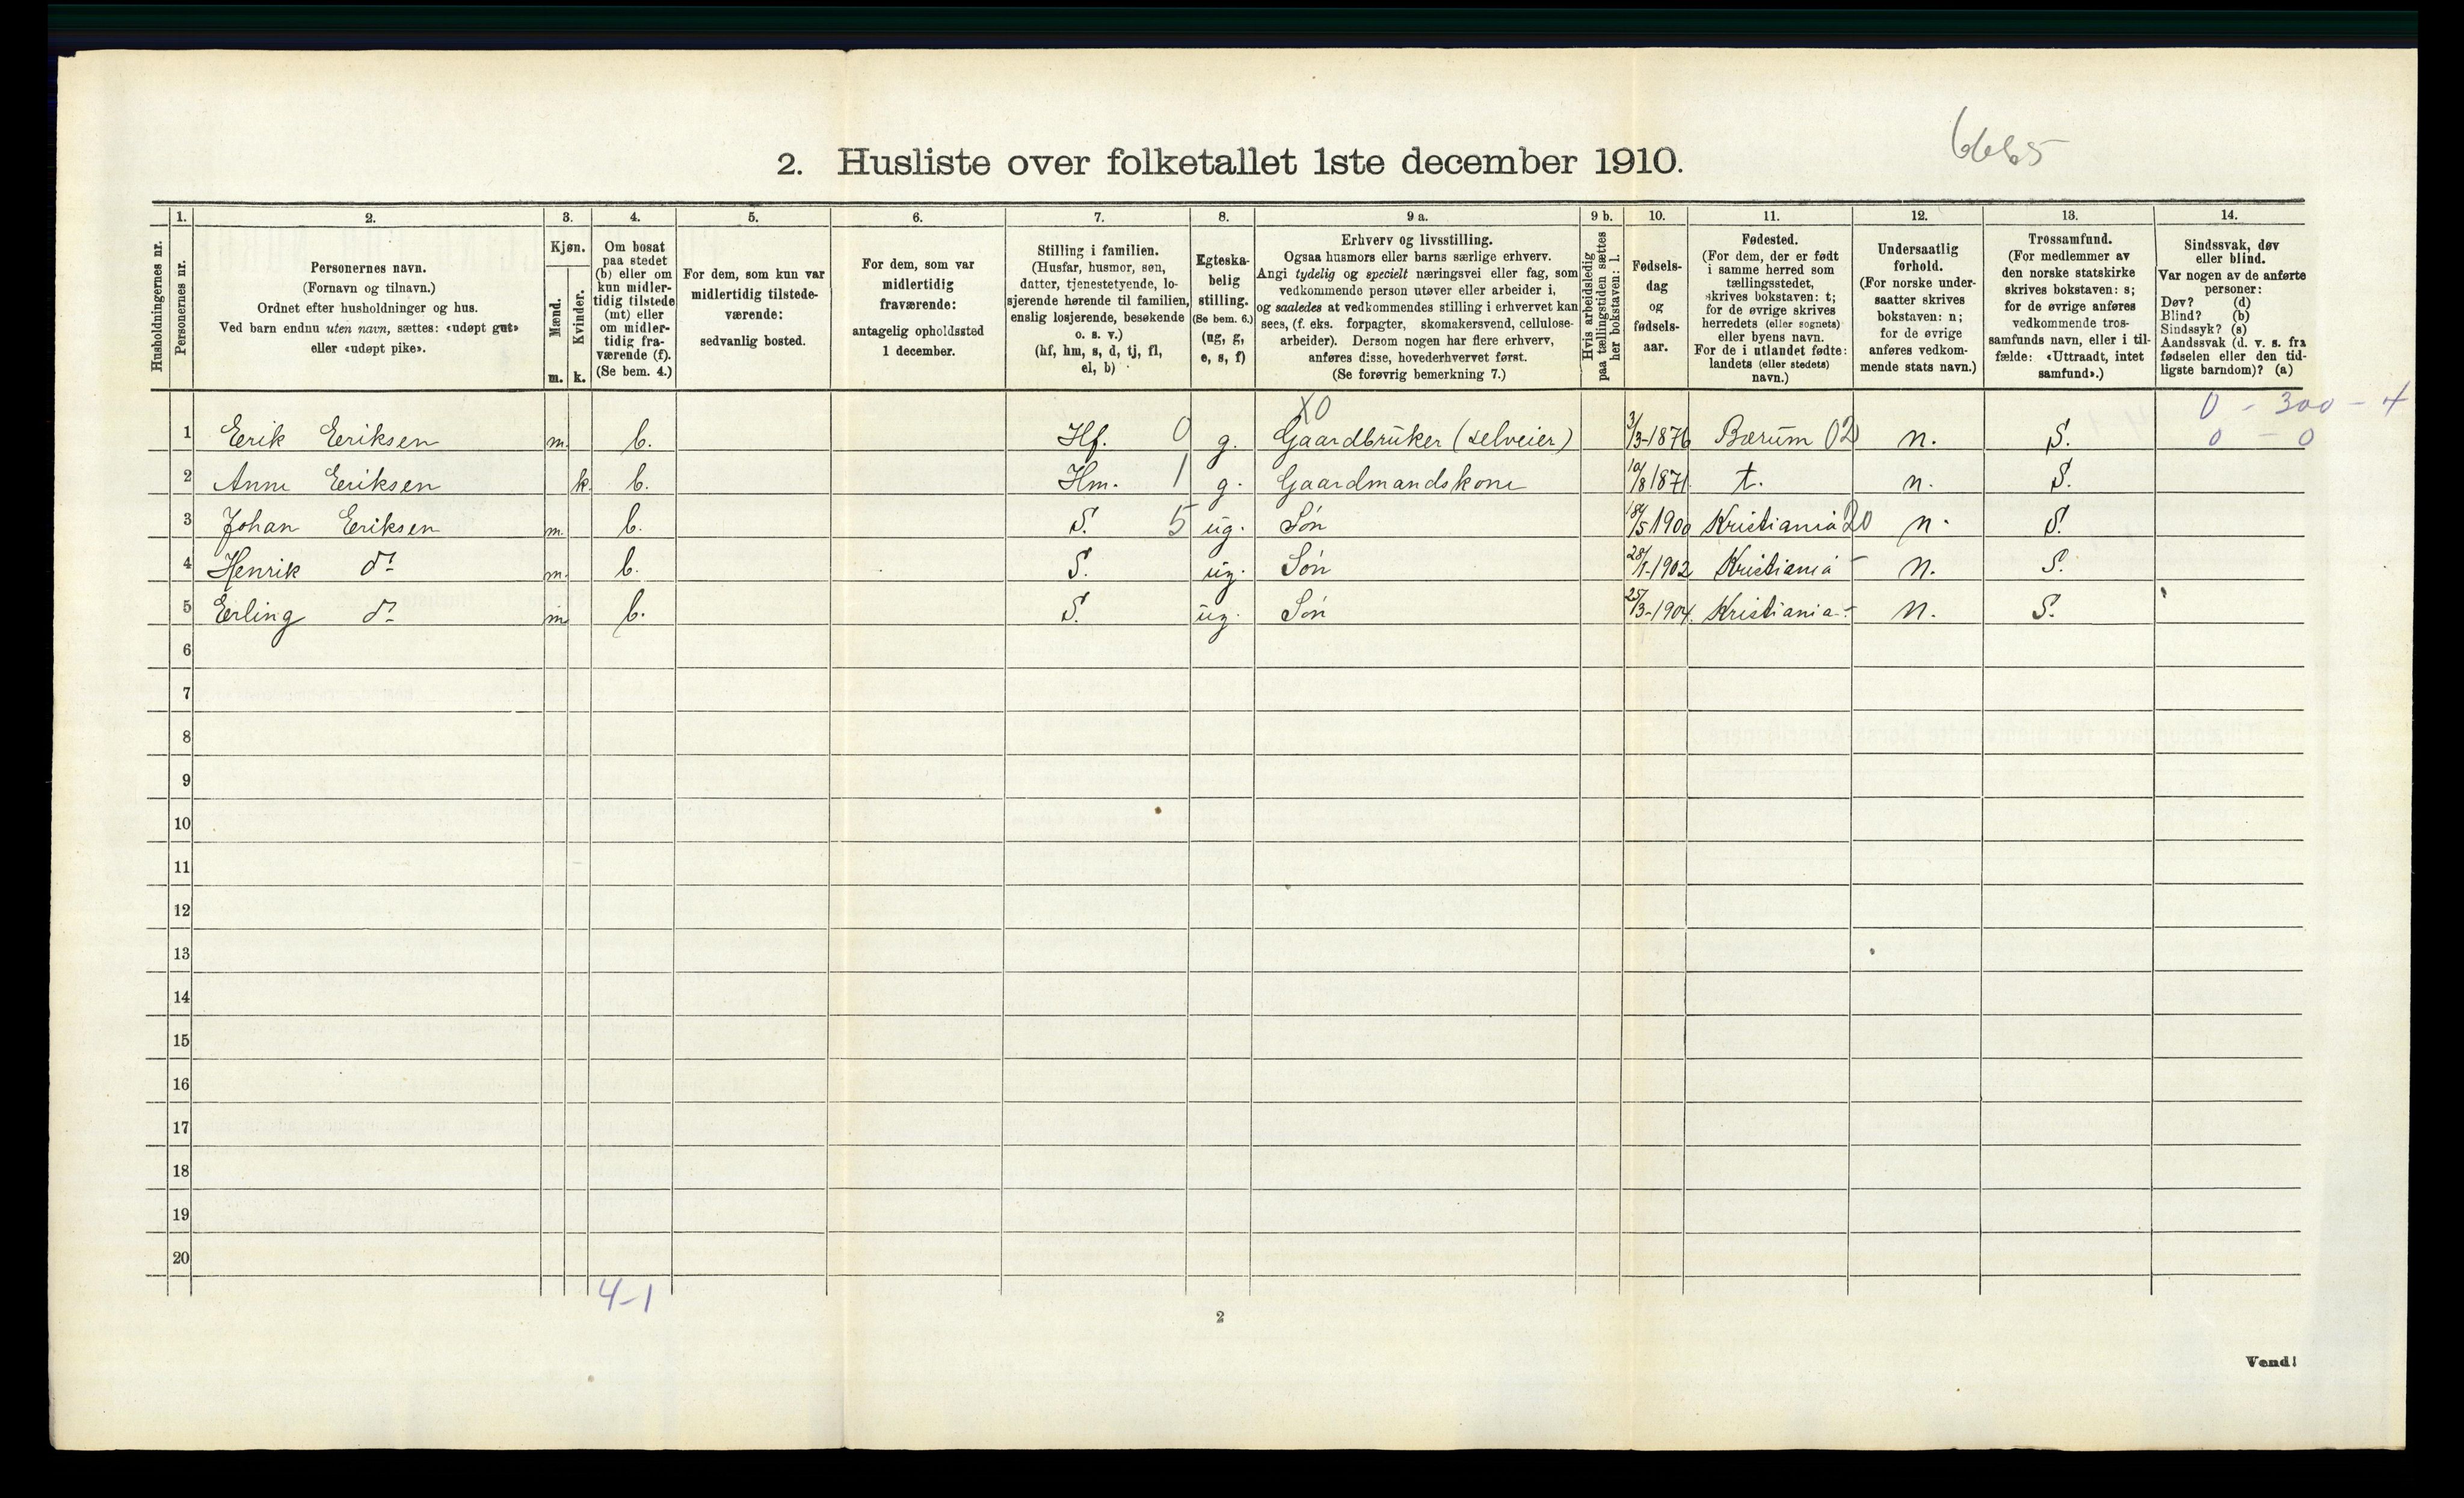 6665
2. Husliste over folketallet 1ste december 1910.
Husholdningernes nr.
1.
Personernes nr.
2.
Personernes navn.
(Fornavn og tilnavn.)
Ordnet efter husholdninger og hus.
Ved barn endnu uten navn, sættes: «udøpt gut»
eller «udøpt pike».
3.
Kjøn.
Mænd.
m.
Kvinder.
k.
4.
Om bosat
paa stedet
(b) eller om
kun midler-
tidig tilstede
(mt) eller
om midler-
tidig fra-
værende (f).
(Se bem. 4.)
5.
For dem, som kun var
midlertidig tilstede-
værende:
sedvanlig bosted.
6.
For dem, som var
midlertidig
fraværende:
antagelig opholdssted
1 december.
7.
Stilling i familien.
(Husfar, husmor, søn,
datter, tjenestetyende, lo-
sjerende hørende til familien,
enslig losjerende, besøkende
o. s. v.)
(hf, hm, s, d, tj, fl,
el, b)
8.
Egteska-
belig
stilling.
(Se bem. 6.)
(ug, g,
e, s, f)
9 a.
Erhverv og livsstilling.
Ogsaa husmors eller barns særlige erhverv.
Angi tydelig og specielt næringsvei eller fag, som
vedkommende person utøver eller arbeider i,
og saaledes at vedkommendes stilling i erhvervet kan
sees, (f. eks. forpagter, skomakersvend, cellulose-
arbeider). Dersom nogen har flere erhverv,
anføres disse, hovederhvervet først.
(Se forøvrig bemerkning 7.)
9 b.
Hvis arbeidsledig
paa tællingstiden sættes
her bokstaven: l.
10.
Fødsels-
dag
og
fødsels-
aar.
11.
Fødested.
(For dem, der er født
i samme herred som
tællingsstedet,
skrives bokstaven: t;
for de øvrige skrives
herredets (eller sognets)
eller byens navn.
For de i utlandet fødte:
landets (eller stedets)
navn.)
12.
Undersaatlig
forhold.
(For norske under-
saatter skrives
bokstaven: n;
for de øvrige
anføres vedkom-
mende stats navn.)
13.
Trossamfund.
(For medlemmer av
den norske statskirke
skrives bokstaven: s;
for de øvrige anføres
vedkommende tros-
samfunds navn, eller i til-
fælde: «Uttraadt, intet
samfund».)
14.
Sindssvak, døv
eller blind.
Var nogen av de anførte
personer:
Døv? (d)
Blind? (b)
Sindssyk? (s)
Aandssvak (d. v. s. fra
fødselen eller den tid-
ligste barndom)? (a)
X0 0 - 300 - 4
1 Erik Eriksen m. b. Hf. 0 g. Gaardbruker (selveier) 3/3-1876 Bærum 02 n. S. 0 - 0
2 Anne Eriksen k. b. Hm. 1 g. Gaardmandskone 19/8 1871 t. n. S.
3 Johan Eriksen m. b. S. 5 ug. Søn 18/5 1900 Kristiania 20 n. S.
4 Henrik do m. b. S. ug. Søn 28/1-1902 Kristiania - n. S.
5 Erling do m b. S. ug. Søn 25/3-1904. Kristiania - n. S.
6
7
8
9
10
11
12
13
14
15
16
17
18
19
20
4-1
2
Vend!